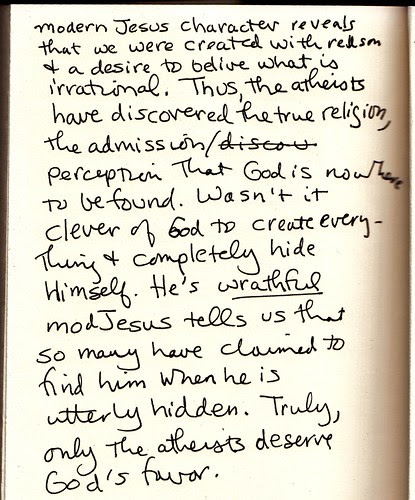 modern Jesus character reveals
that we were created with reason
& a desire to belive what is
irrational. Thus, the atheists
have discovered the true religion,
the admission/discow
perception that God is nowhere
to be found. Wasn't it
clever of God to create every-
thing & completely hide
Himself. He's wrathful
modJesus tells us that
so many have claimed to
find him when he is
utterly hidden. Truly,
only the atheists deserve
God's favor.